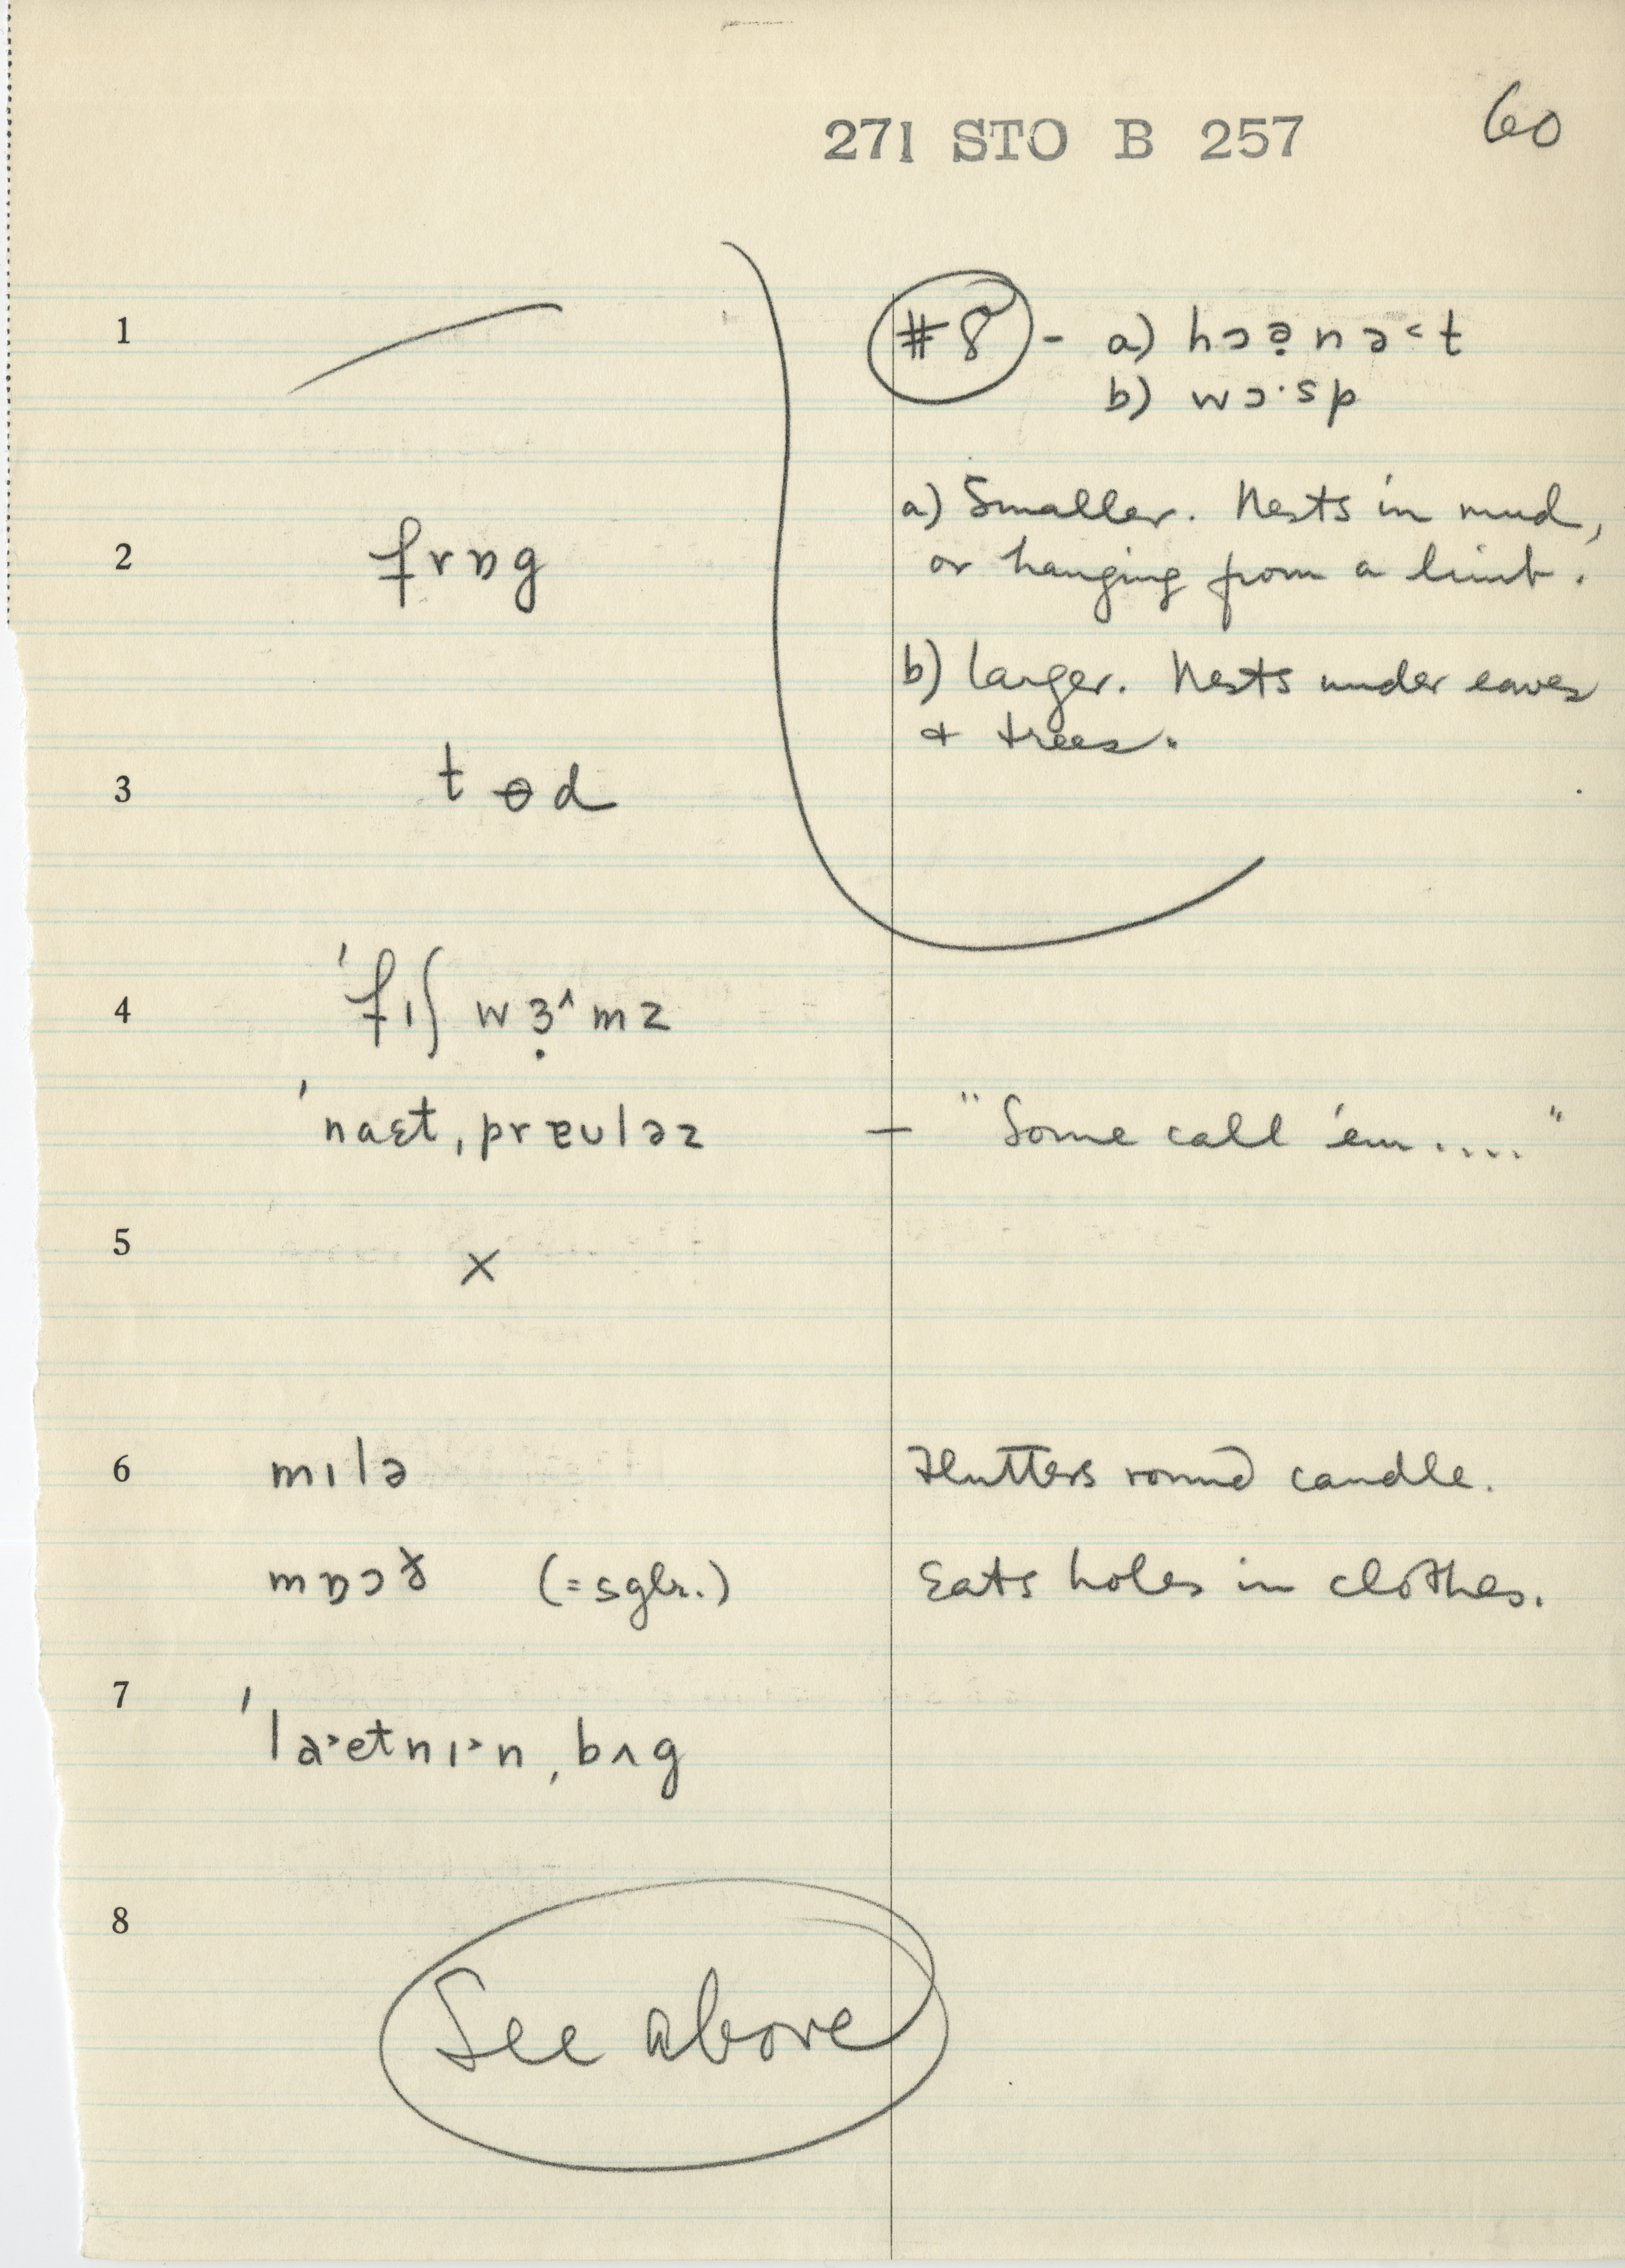 271 STO B 257 60
1 #8 - a) hɔə̣nə˂t
b) wɔ·sp
a) Smaller. Nests in mud,
2 frɒg or hanging from a limb.
b) Larger. Nests under eaves
& trees.
3 tɵd
4 'fɪʃ wɜ̣^mz
'naɛt, prɐʊləz – "Some call 'em...."
5 ×
6 mɪlə Flutters round candle.
mɒɔð̯ (=sglr.) Eats holes in clothes.
7 'la˃etnɪ˃n, bʌg
8 See above